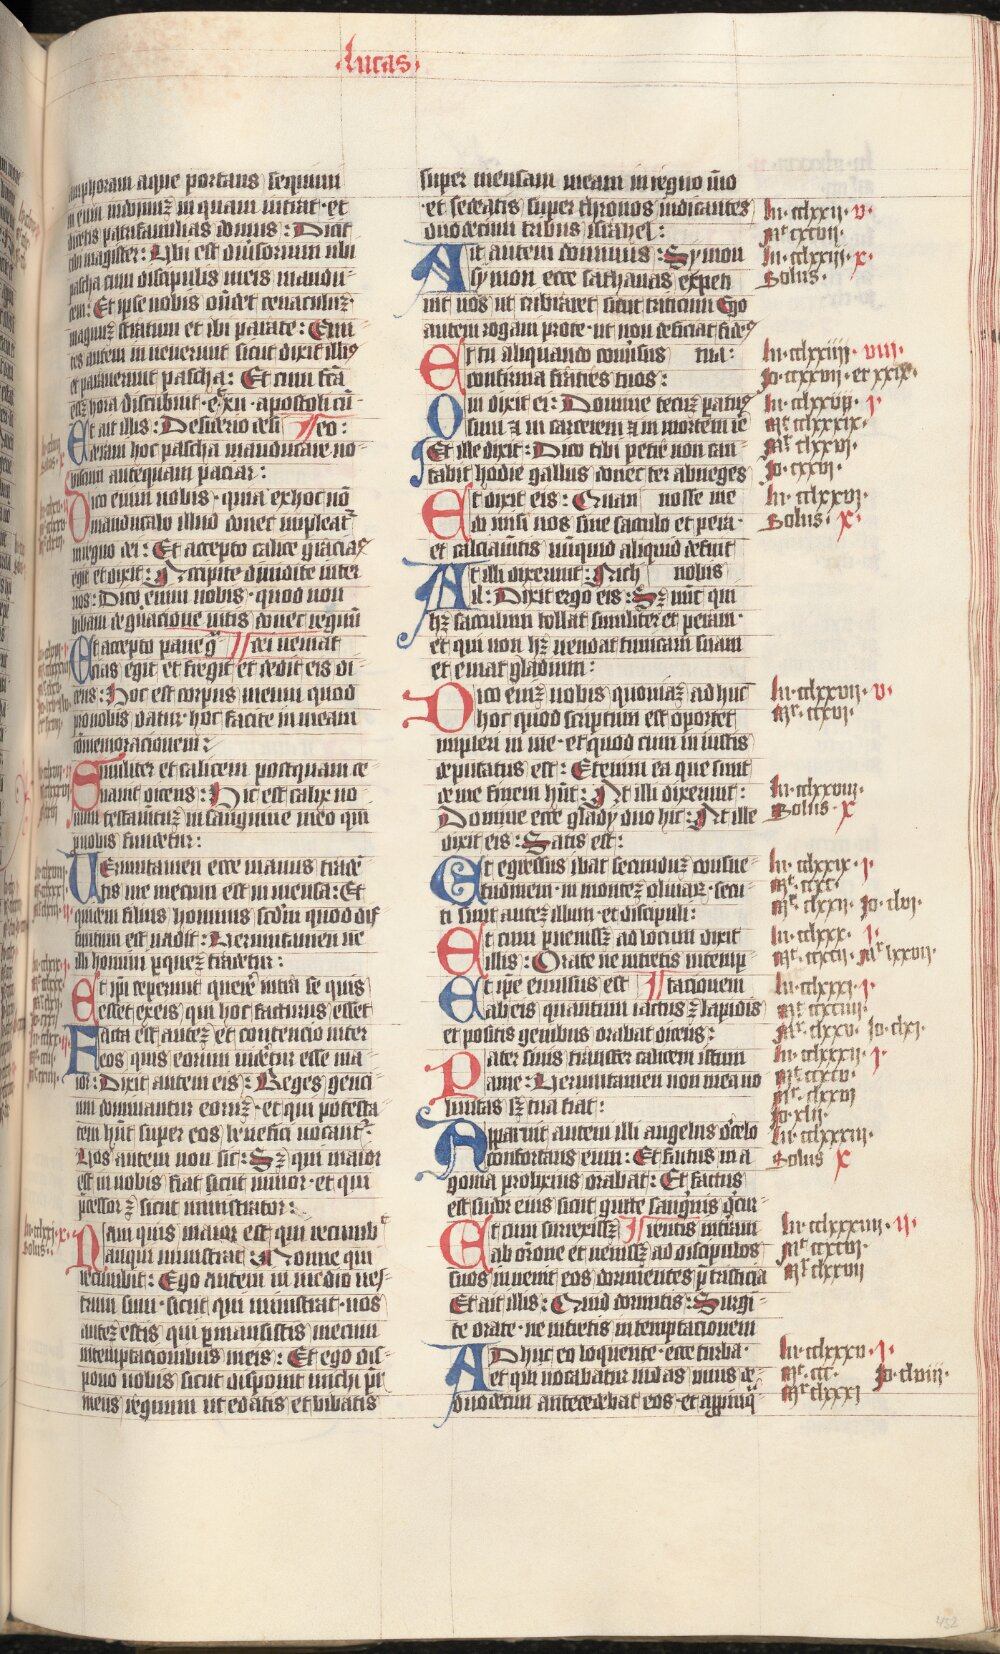 .lucas.
amphoram aque portans sequimi
ni eum in domuz in quam intrat · et
dicetis patrifamilias domus : Dicit
tibi magister : Ubi est diuersorium ubi
pascha cum discipulis meis mandu-
cem : Et ipse nobis ondet cenaculuz
magnuz stratum et ibi parate : Eun
tes autem inuenerunt sicut dixit illis
et parauerunt pascha : Et cum fcā
essz hora discubuit · et xii · apostoli cū
Et ait illis : Desiderio desi eo :
deram hoc pascha manducare uo-
biscum antequam paciar :
Dico enim uobis · quia ex hoc nō
manducabo illud donec impleat
in regno dei : Et accepto calice gracias
egit et dixit : Accipite diuidite inter
uos : Dico enim uobis · quod non
bibam de gnacione uitis donec regnū
Et accepto pane gra dei ueniat
cias egit et fregit et dedit eis di
cens : Hoc est corpus meum quod
pro uobis datur · hoc facite in meam
comemoracionem :
Similiter et calicem postquam ce
nauit dicens : Hic est calix no
uum testamētuz in sanguine meo qui
pro uobis fundetur :
Uerumtamen ecce manus tradē
tis me mecum est in mensa : Et
quidem filius hominis scdm quod dif
finitum est uadit : Uerumtamen ue
illi homini per quez tradetur :
Et ipi ceperunt querere intra se quis
esset ex eis qui hoc facturus esset
Facta est autez et contencio inter
eos quis eorum uidetur esse ma
ior : Dixit autem eis : Reges genci
um dominantur eoruz · et qui potesta
tem hnt super eos benefici uocant
Uos autem non sic : Sz qui maior
est in uobis fiat sicut minor · et qui
pcessor z sicut ministrator :
Nam quis maior est qui recumb
an qui ministrat : Nonne qui
recumbit : Ego autem in medio ues-
trum sum · sicut qui ministrat · uos
autez estis qui pmansistis mecum
in temptacionibus meis : Et ego dis-
pono uobis sicut disposuit michi pr
meus regnum ut edatis et bibatis
super mensam meam in regno mo
· et sedeatis super thronos iudicantes
duodecim tribus israhel :
Ait autem dominus : Symon
symon ecce sathanas expeti
uit uos ut cribraret sicut triticum Ego
autem rogaui pro te · ut non deficiat fides
Et tu aliquando conuersus tua :
confirma fratres tuos :
Qui dixit ei : Domine tecuz paratus
sum z in carcerem z in mortem ire
Et ille dixit : Dico tibi petre non can
tabit hodie gallus donec ter abneges
Et dixit eis : Quan nosse me
do misi uos sine sacculo et pera ·
et calciamtis nuquid aliquid defuit
At illi dixerunt : Nich uobis
il : Dixit ergo eis : Sz nūc qui
hz sacculum tollat similiter et peram ·
et qui non hz uendat tunicam suam
et emat gladium :
Dico enīz uobis quoniaz adhuc
hoc quod scriptum est oportet
impleri in me · et quod cum iniustis
deputatus est : Etenim ea que sunt
de me finem hnt : At illi dixerunt :
Domine ecce gladij duo hic : At ille
dixit eis : Satis est :
Et egressus ibat secunduz consue-
tudinem · in montez oliuarz · secu-
ti sunt autez illum · et discipuli :
Et cum peruenissz ad locum dixit
illis : Orate ne intretis in temp-
Et ipe euulsus est tacionem
ab eis quantum iactus z lapidis
et positis genibus orabat dicens :
Pater si uis transfer calicem istum
a me : Uerumtamen non mea uo
luntas sz tua fiat :
Apparuit autem illi angelus d'celo
confortans eum : Et factus in a
gonia prolixius orabat : Et factus
est sudor eius sicut gutte sanguis d'cur
Et cum surrexissz rentis in terram
ab oracione et uenissz ad discipulos
suos inuenit eos dormientes p tristicia
Et ait illis : Quid dormitis : Surgi-
te orate · ne intretis in temptacionem
Adhuc eo loquente · ecce turba ·
et qui uocabatur iudas unus de
duodecim antecedebat eos · et appinq
lu · cclxxi · x ·
Solus ·
lu · cclxxii · v ·
mt cxcvii ·
lu · cclxxiii · x ·
Solus ·
lu · cclxxiiii · viii ·
Jo · ccxxvii · et xxix ·
lu · cclxxv · i ·
mt cclxxxix ·
mr clxxvi ·
Jo · cxxvi ·
lu · cclxxvi ·
Solus · x ·
lu · cclxxvii · v ·
mr · ccxvi ·
lu · cclxxviii ·
Solus · x
lu · cclxxix · i ·
mt · ccxci ·
mr · clxxii · Jo · clvi ·
lu · cclxxx · i ·
mt · ccxcii · mr lxxvii ·
lu · cclxxxi · i ·
mt ccxciiii ·
mr · clxxv · Jo · clxi ·
lu · cclxxxii · i ·
mt ccxcv ·
mr · clxxvi
Jo · xlii ·
lu · cclxxxiii ·
Solus x
lu · cclxxxiiii · ii ·
mt ccxcvi ·
mr clxxvii
lu · cclxxxv · i ·
mt · ccc · Jo · clviii ·
mr clxxxi
452